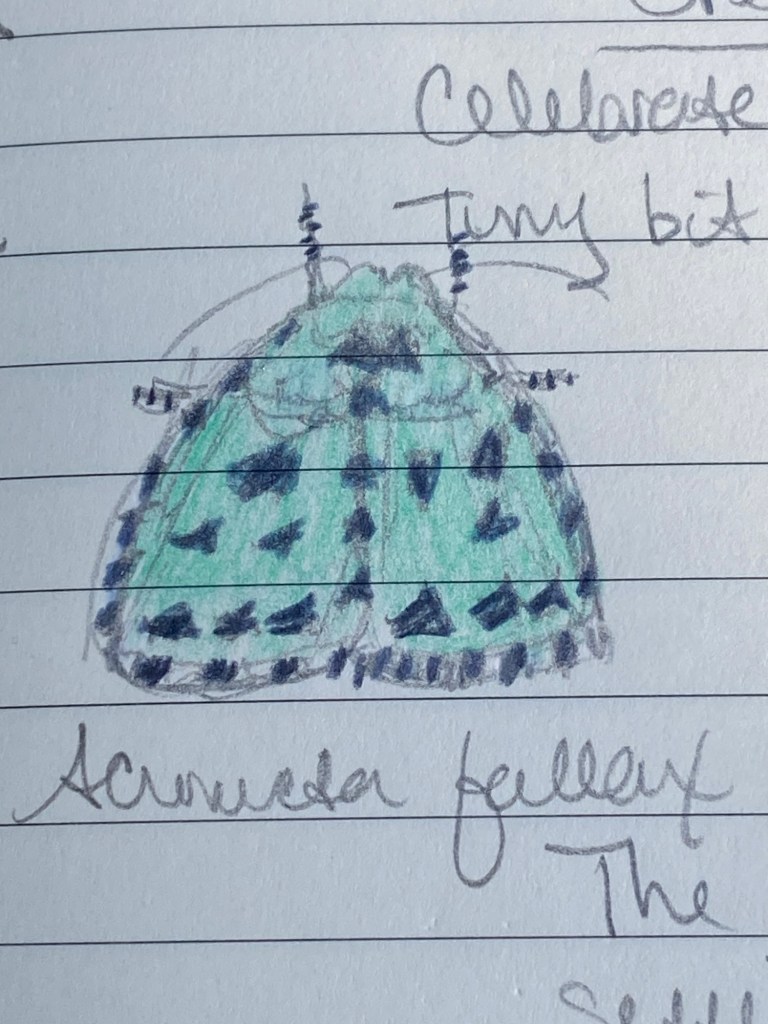 Celebrate
Tiny bit
Acronicta fallax
The